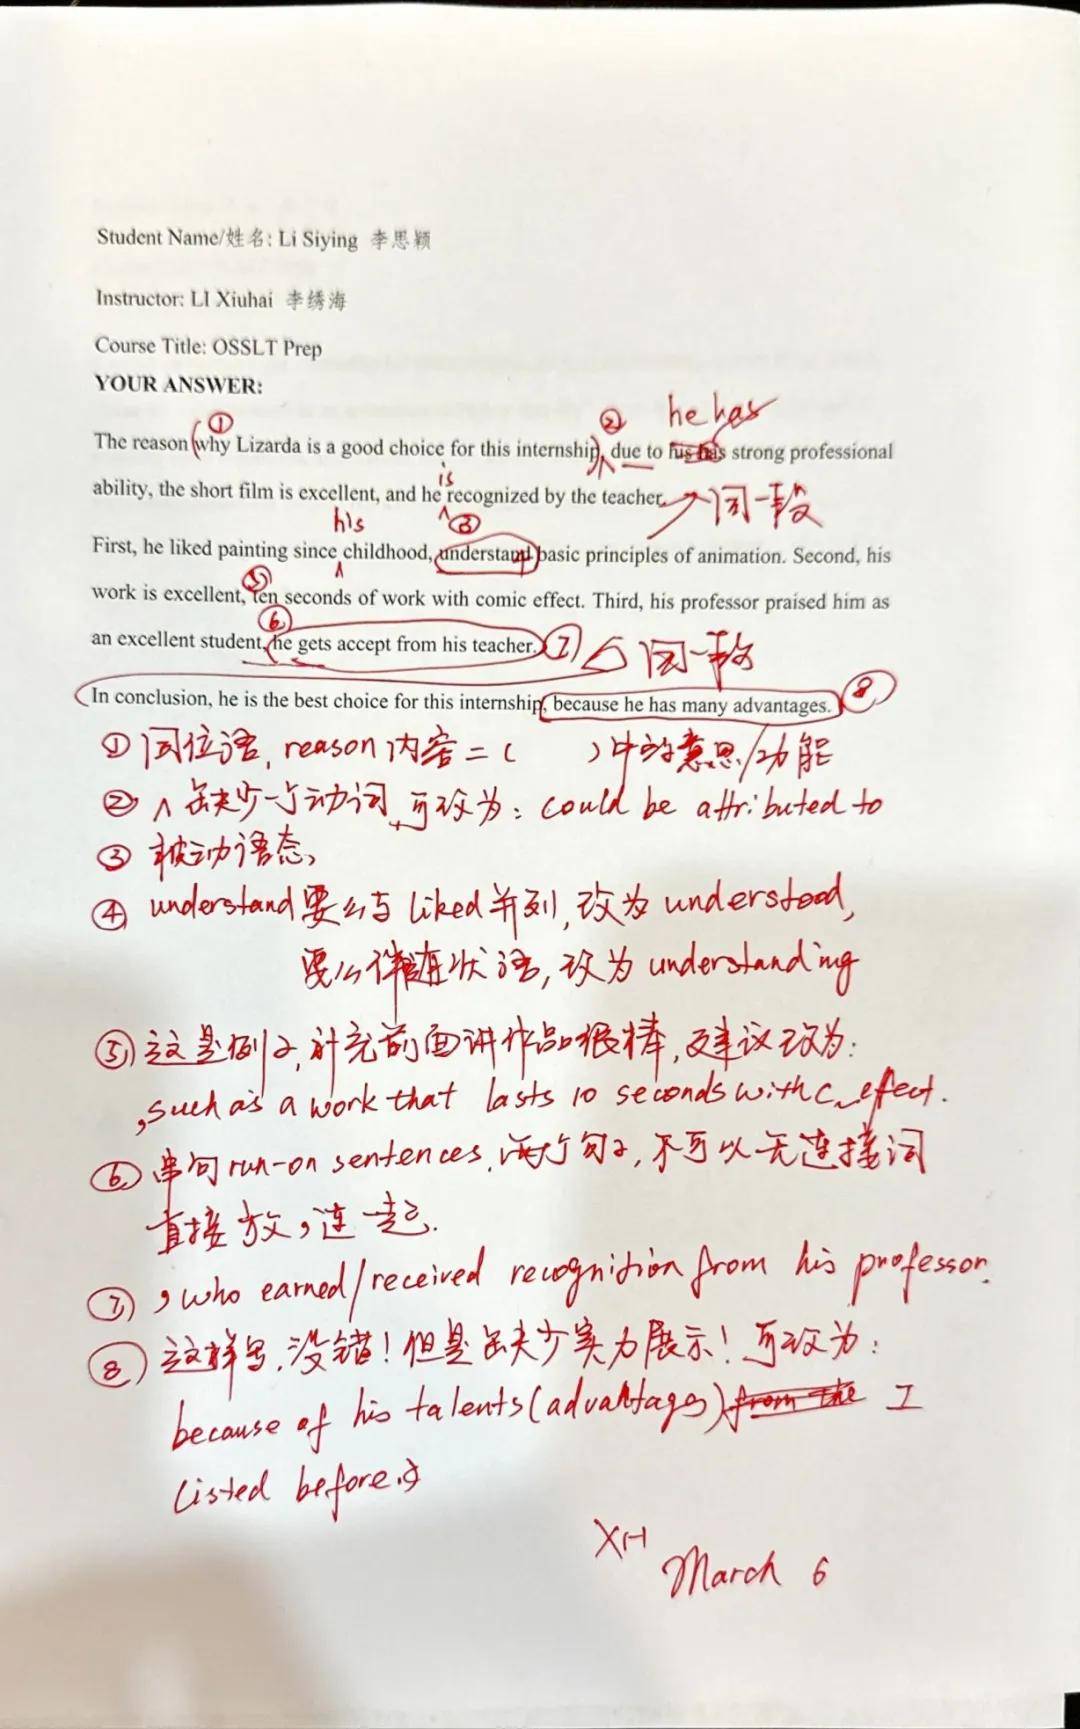 Student Name/姓名: Li Siying 李思颖
Instructor: LI Xiuhai 李绣海
Course Title: OSSLT Prep
YOUR ANSWER:
① ② he has
The reason (why Lizarda is a good choice for this internship), ∧ due to his has strong professional
is
ability, the short film is excellent, and he ∧ recognized by the teacher. 同一段
his ③
First, he liked painting since ∧ childhood, understand basic principles of animation. Second, his
⑤
work is excellent, ten seconds of work with comic effect. Third, his professor praised him as
⑥
an excellent student, (he gets accept from his teacher.) ⑦ 同一段
In conclusion, he is the best choice for this internship, because he has many advantages. ⑧
① 同位语, reason内容=( )中的意思/功能
② ∧ 缺少一个动词, 可改为: could be attributed to
③ 被动语态,
④ understand要么与liked并列, 改为understood,
要么伴随状语, 改为understanding
⑤ 这是例子, 补充前面讲作品很棒, 建议改为:
, such as a work that lasts 10 seconds with c~ effect.
⑥ 串句run-on sentences, 两个句子, 不可以无连接词
直接放,连一起.
⑦ , who earned/received recognition from his professor.
⑧ 这样写, 没错! 但是缺少实力展示! 可改为:
because of his talents (advantages) from the I
listed before.
XH
March 6